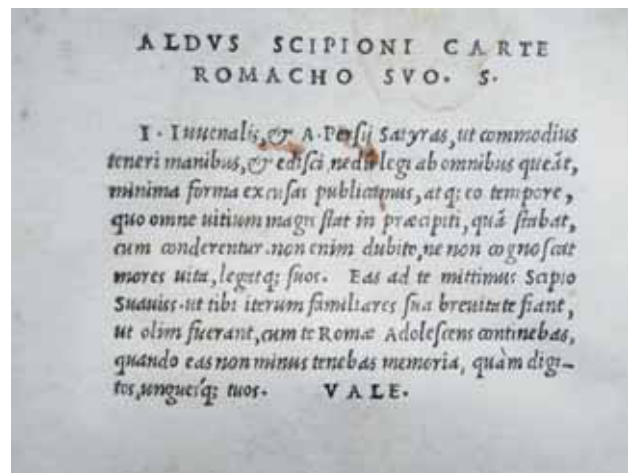 ALDVS SCIPIONI CARTE
ROMACHO SVO. S.
I. Iuuenalis, & A. Persij Satyras, ut commodius
teneri manibus, & edisci nedũ legi ab omnibus queãt,
minima forma excusas publicamus, atq; eo tempore,
quo omne uitium magis stat in præcipiti, quã stabat,
cum conderentur. non enim dubito, ne non cognoscat
mores uita, legatq; suos. Eas ad te mittimus Scipio
Suauiss. ut tibi iterum familiares sua breuitate fiant,
ut olim fuerant, cum te Romæ Adolescens continebas,
quando eas non minus tenebas memoria, quàm digi-
tos, ungues'q; tuos. VALE.